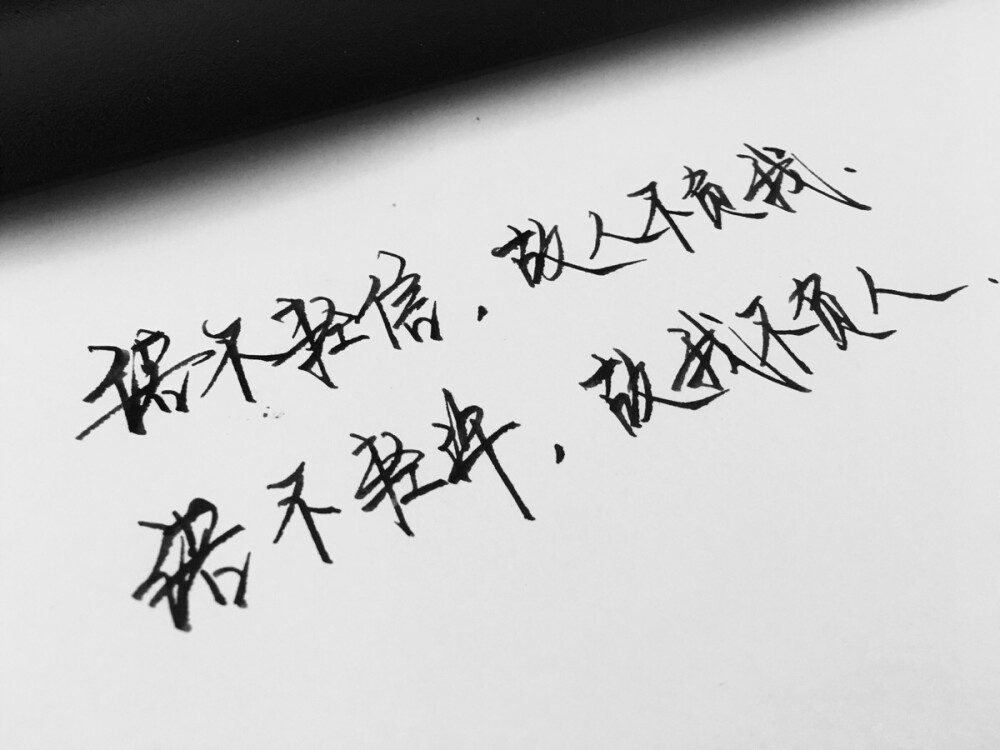 诺不轻信，故人不负我.
诺不轻许，故我不负人.